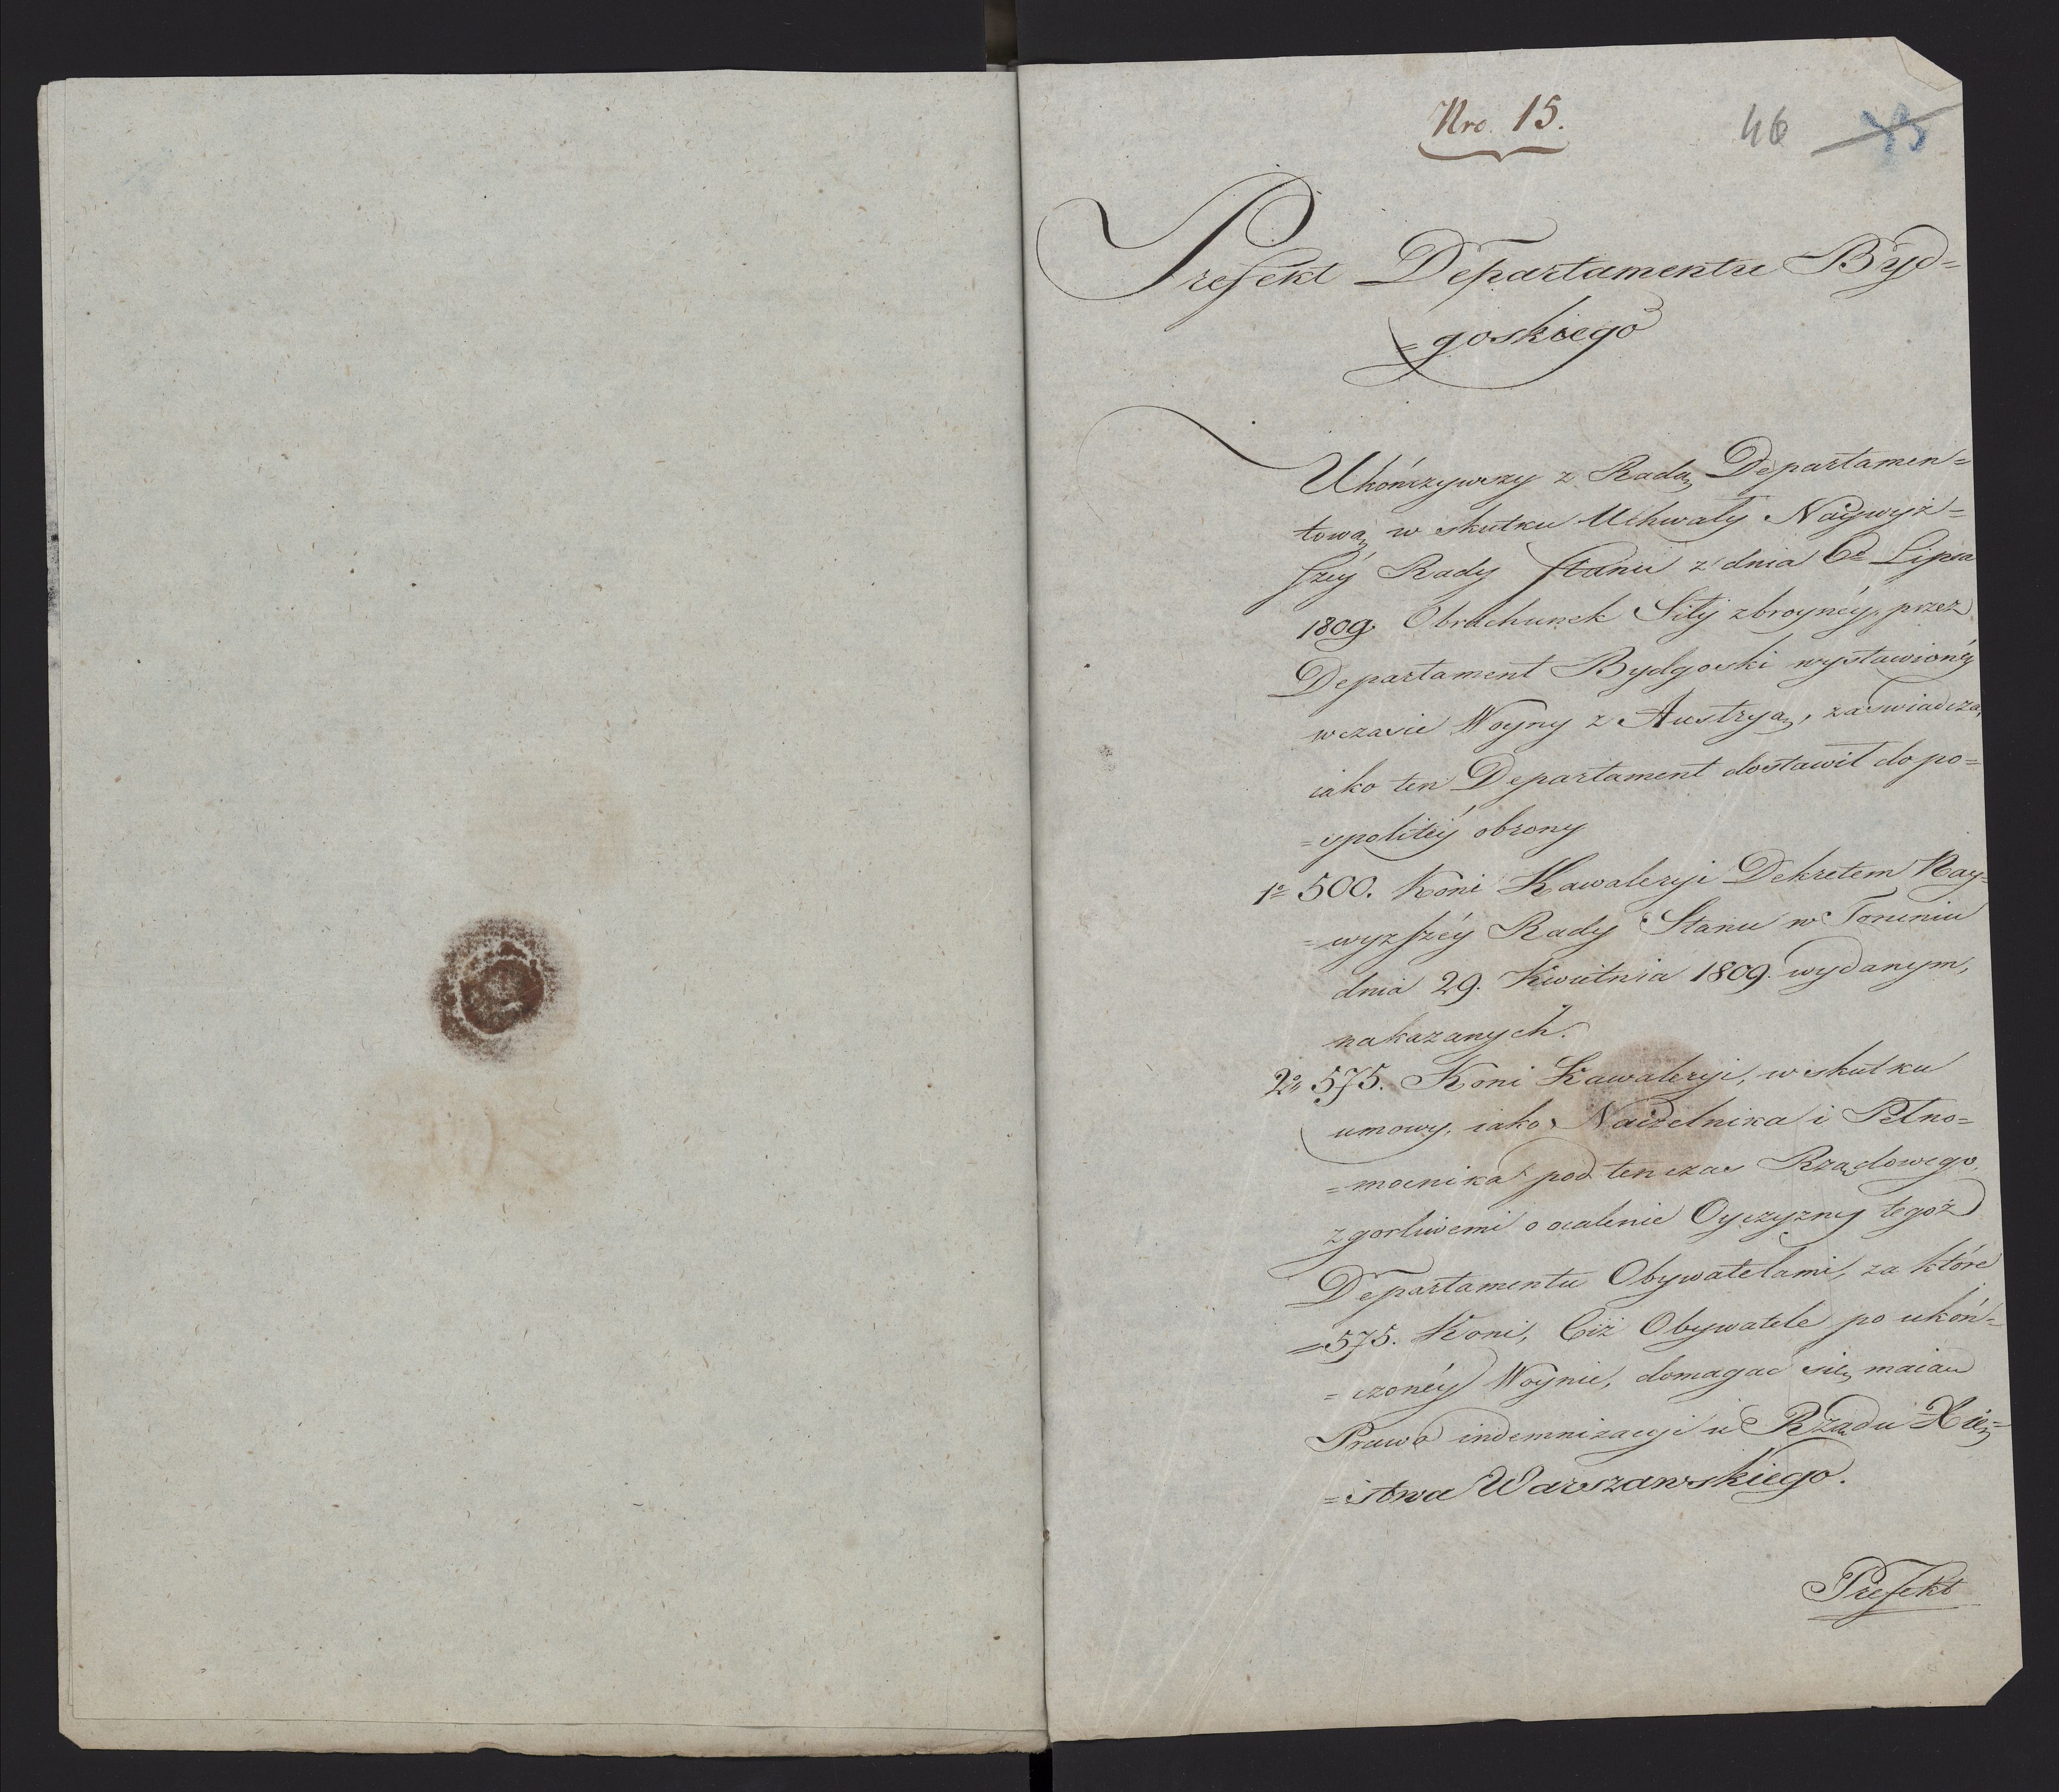 Nro. 15.
46
Prefekt Departamentu Byd=
=goskiego
Ukończywszy z Radą Departamen=
tową w skutku Uchwały Naywyż=
széy Rady Stanu z dnia 6º Lipca
1809. Obrachunek Siły zbroynéy, przez
Departament Bydgoski wystawionéy
w czasie Woyny z Austryą, zaświadcza,
iako ten Departament dostawił do po=
=spolitéy obrony
1º 500. Koni Kawaleryi Dekretem Nay=
=wyzszéy Rady Stanu w Toruniu
dnia 29. Kwietnia 1809. wydanym,
nakazanych.
2º 575. Koni Kawaleryi, w skutku
umowy, iako Naczelnika i Pełno=
=mocnika pod ten czas Rządowego,
z gorliwemi o ocalenie Oyczyzny tegoż
Departamentu Obywatelami, za które
=575. Koni, Ciż Obywatele po ukoń=
=czonéy Woynie, domagac się maią
Prawo indemnizacyi u Rządu Xię=
=stwa Warszawskiego.
Prefekt